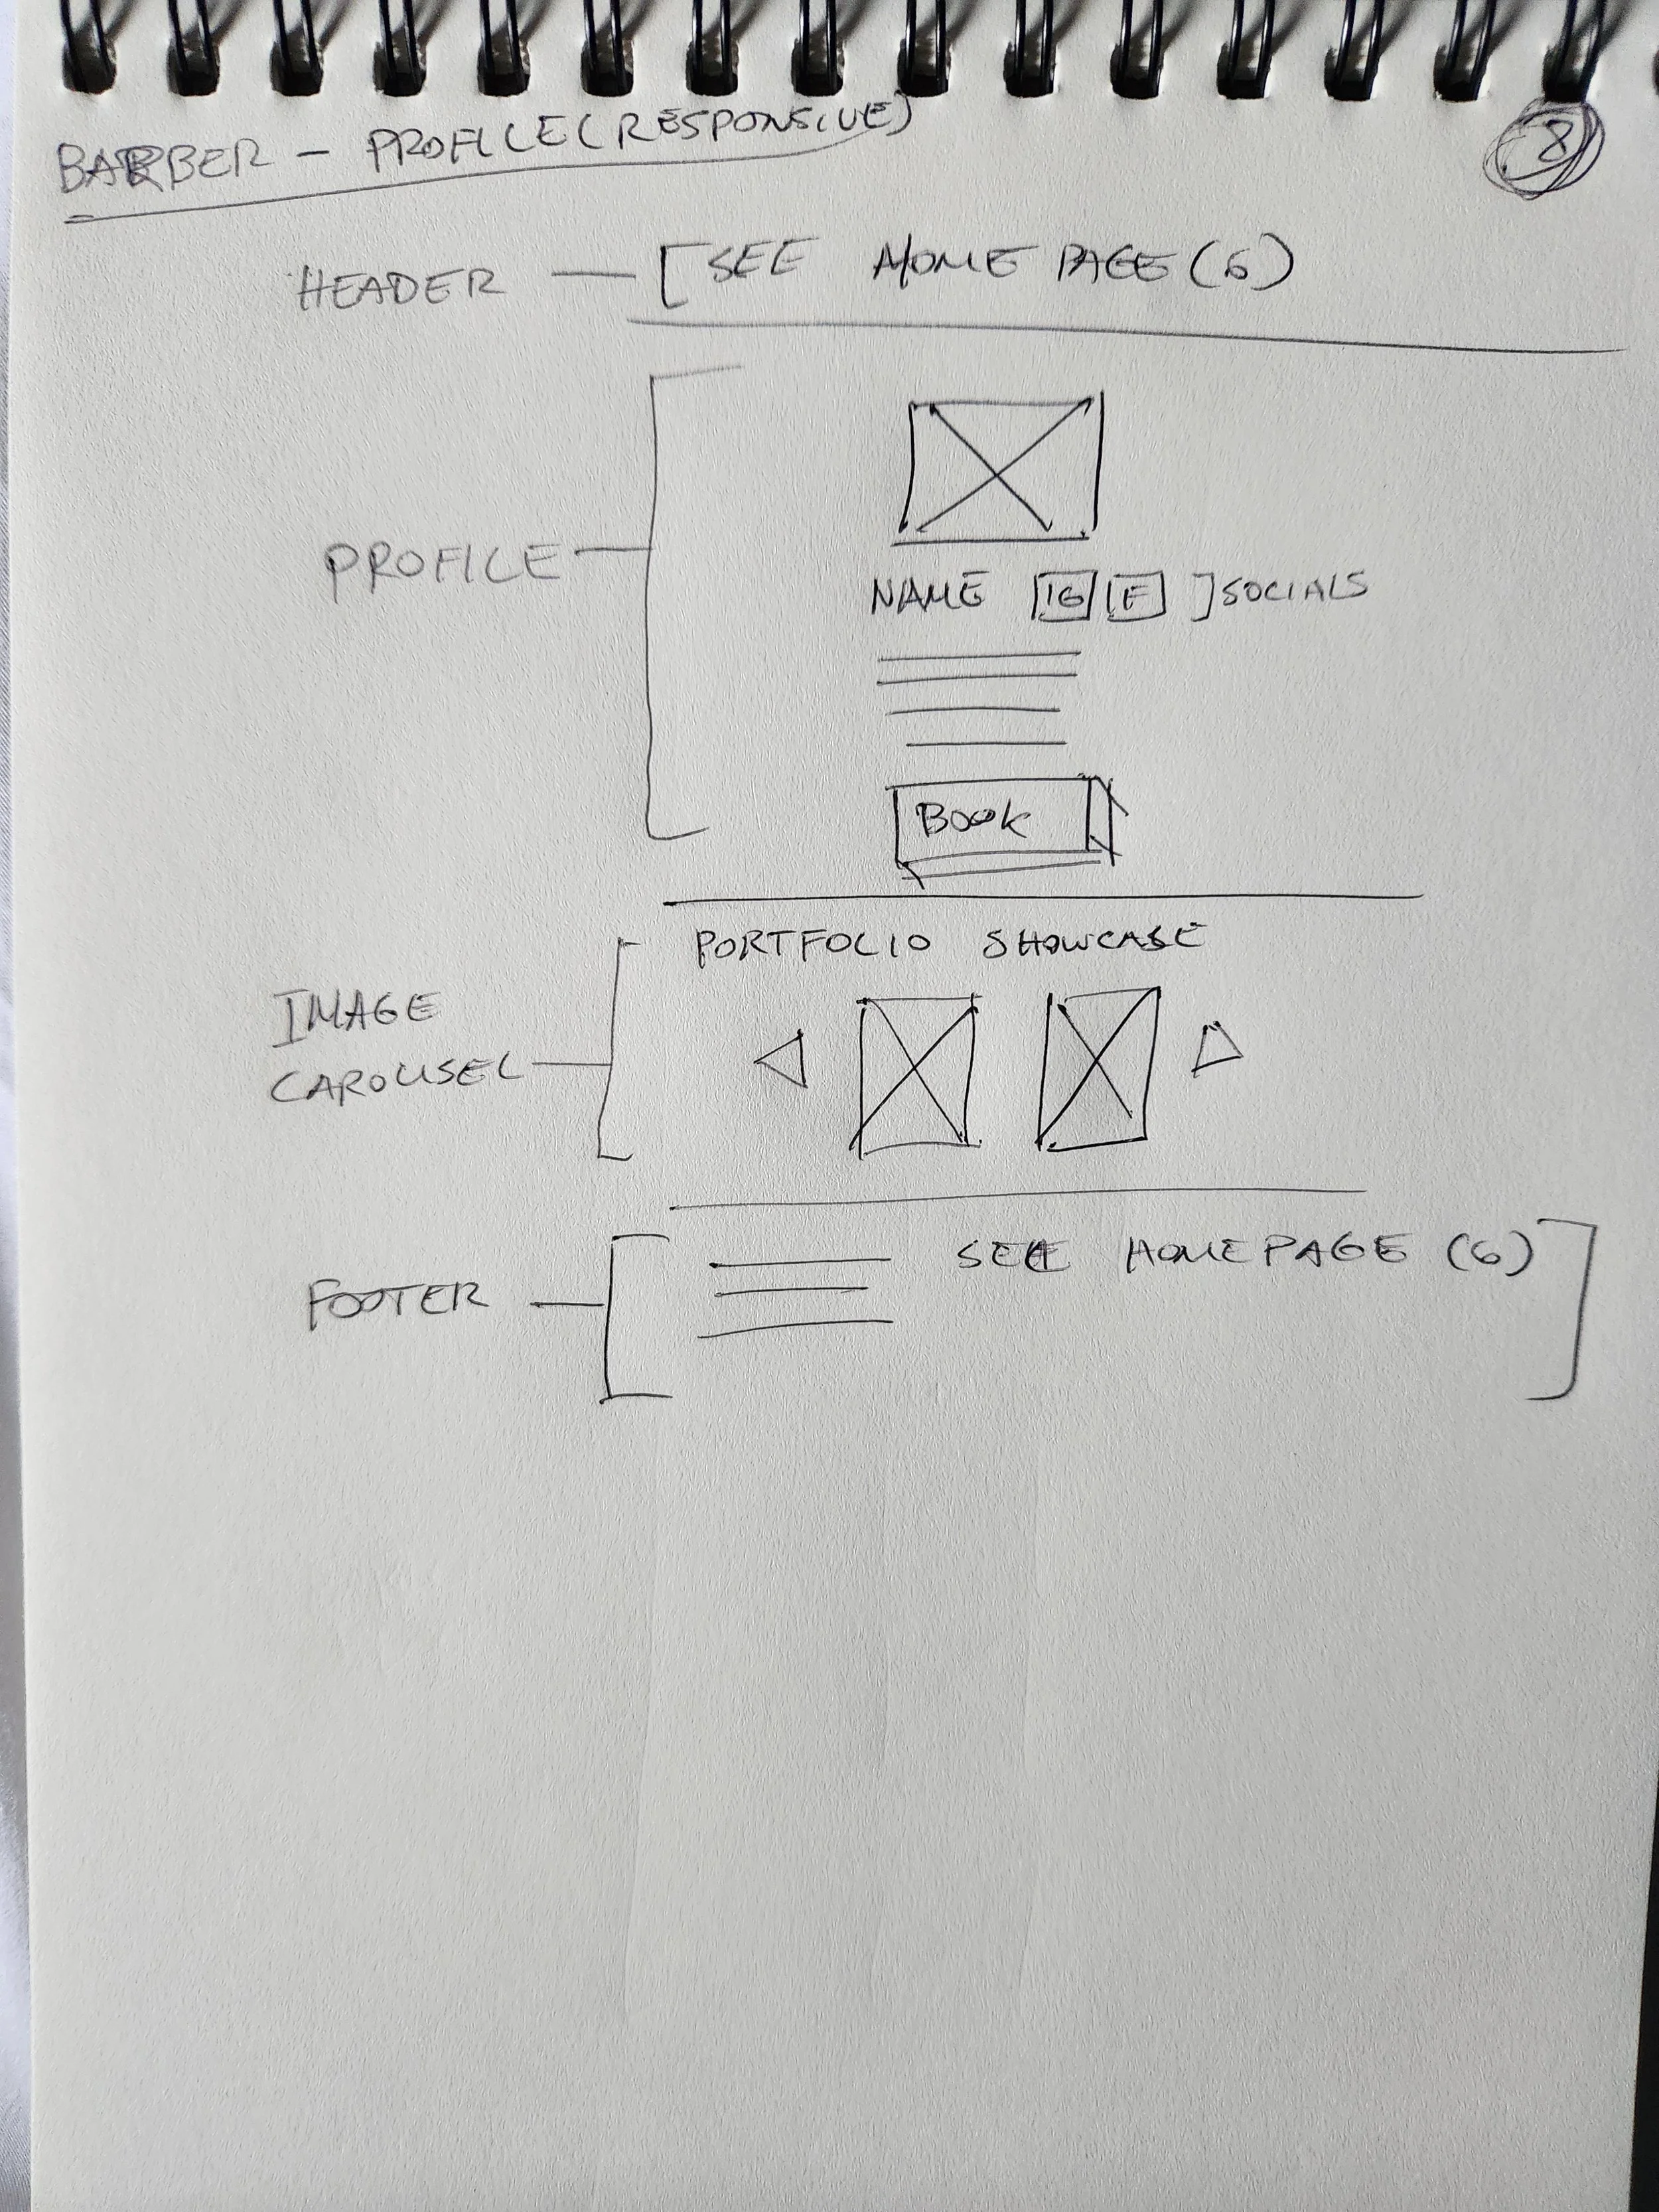 BARBER - PROFILE (RESPONSIVE)
8
HEADER - [SEE HOME PAGE (6)
PROFILE
NAME [IG] [F] ] SOCIALS
Book
PORTFOLIO SHOWCASE
IMAGE
CAROUSEL
SEE HOMEPAGE (6)
FOOTER